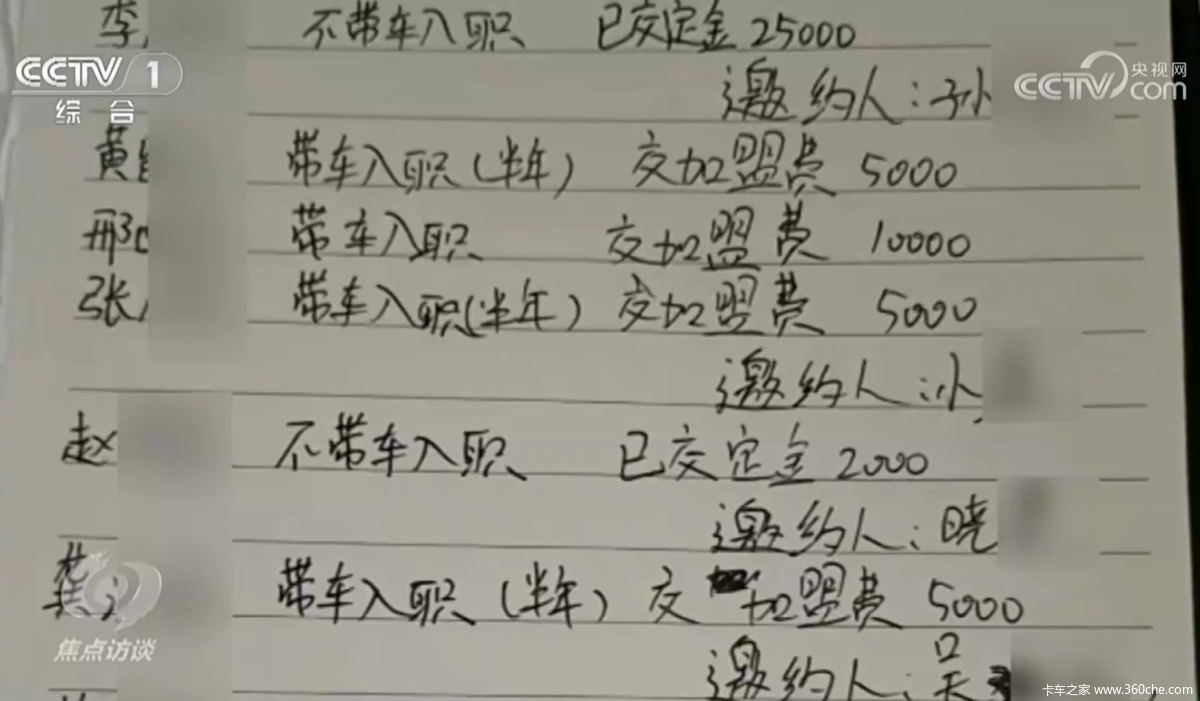 李 不带车入职 已交定金25000
CCTV 1
综合
央视网
CCTV.com
邀约人:孙
黄 带车入职(半年) 交加盟费 5000
邢 带车入职 交加盟费 10000
张 带车入职(半年) 交加盟费 5000
邀约人:小
赵 不带车入职 已交定金2000
邀约人:晓
龚 带车入职(半年) 交 加盟费 5000
焦点访谈
邀约人:吴
卡车之家 www.360che.com